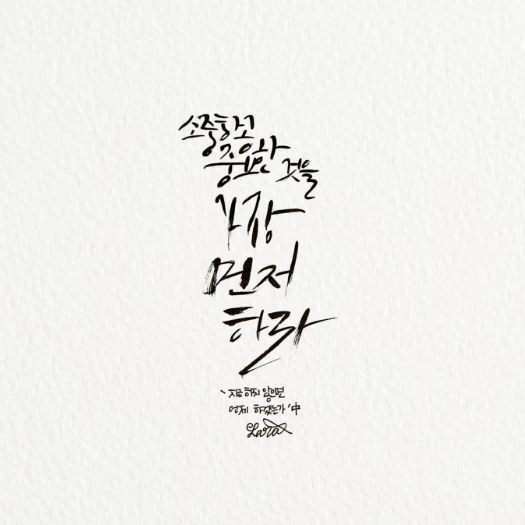 소중하고
중요한 것을
가장
먼저
하라
`지금 하지 않으면
언제 하겠는가 '中